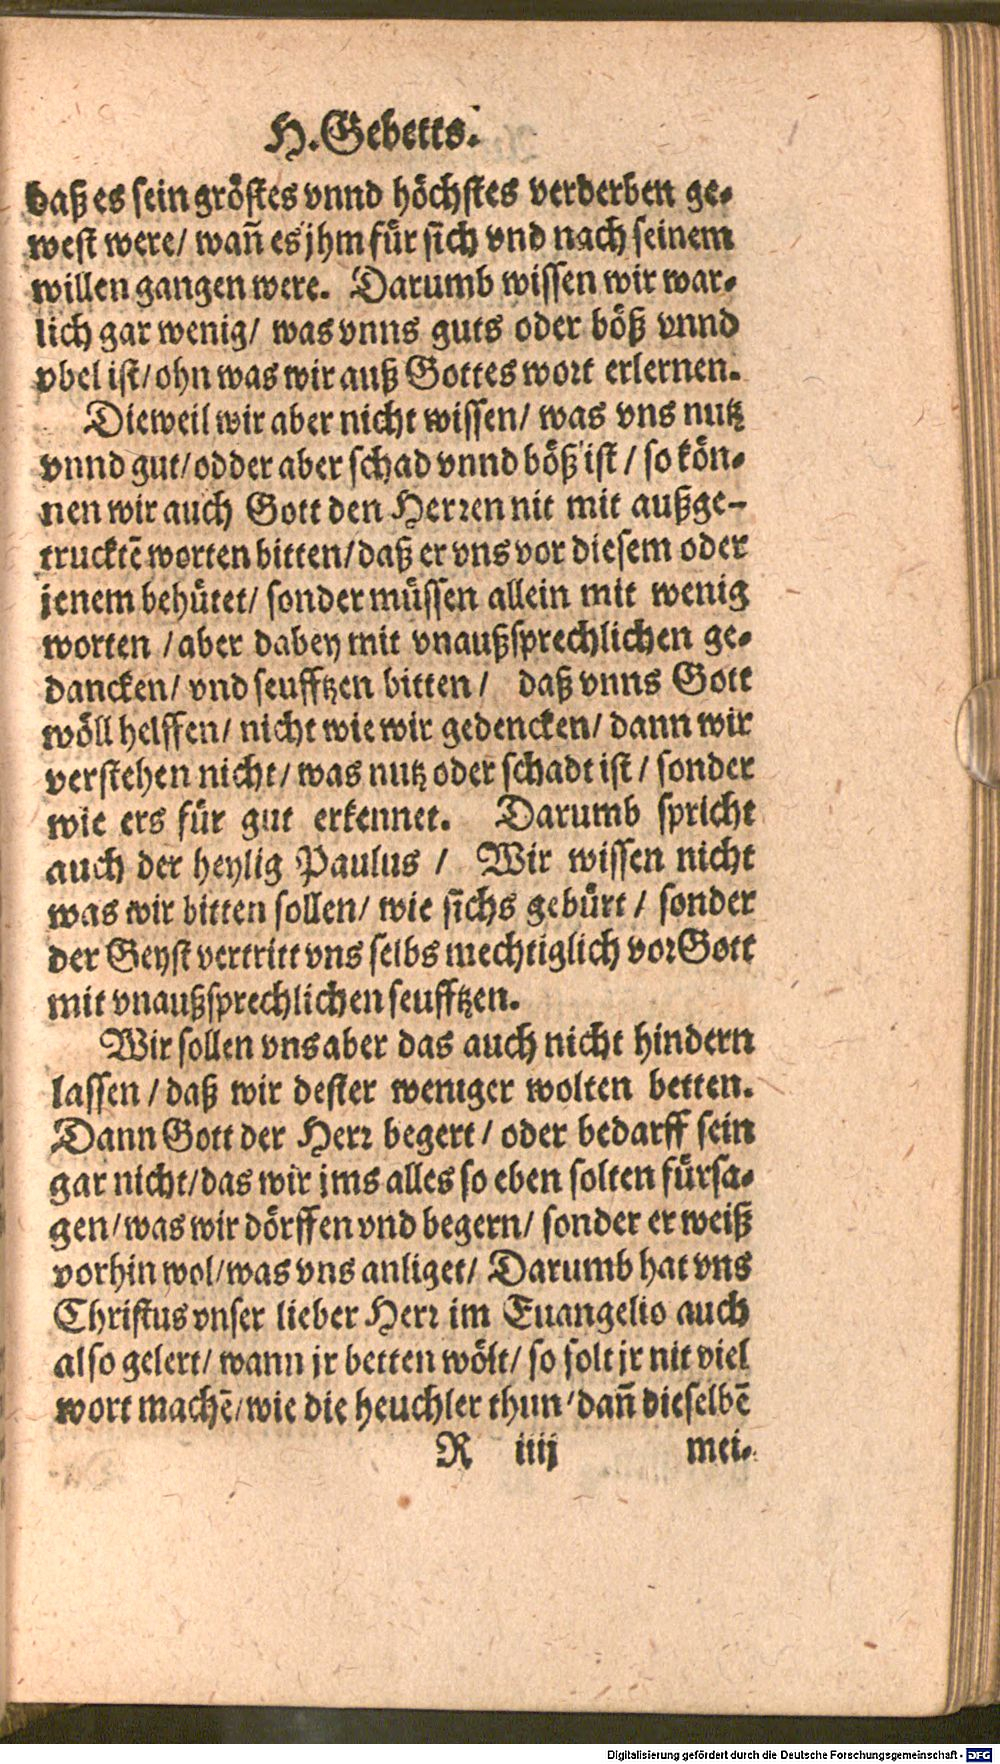 H. Gebetts.
daß es sein gröstes vnnd höchstes verderben ge-
west were/ wañ es jhm für sich vnd nach seinem
willen gangen were. Darumb wissen wir war-
lich gar wenig/ was vnns guts oder böß vnnd
vbel ist/ ohn was wir auß Gottes wort erlernen.
Dieweil wir aber nicht wissen/ was vns nutz
vnnd gut/ odder aber schad vnnd böß ist/ so kön-
nen wir auch Gott den Herren nit mit außge-
trucktē worten bitten/ daß er vns vor diesem oder
jenem behütet/ sonder müssen allein mit wenig
worten / aber dabey mit vnaußsprechlichen ge-
dancken/ vnd seufftzen bitten/ daß vnns Gott
wöll helffen/ nicht wie wir gedencken/ dann wir
verstehen nicht/ was nutz oder schadt ist/ sonder
wie ers für gut erkennet. Darumb spricht
auch der heylig Paulus / Wir wissen nicht
was wir bitten sollen/ wie sichs gebürt / sonder
der Geyst vertritt vns selbs mechtiglich vor Gott
mit vnaußsprechlichen seufftzen.
Wir sollen vns aber das auch nicht hindern
lassen/ daß wir dester weniger wolten betten.
Dann Gott der Herr begert/ oder bedarff sein
gar nicht/ das wir jms alles so eben solten fürsa-
gen/ was wir dörffen vnd begern/ sonder er weiß
vorhin wol/ was vns anliget/ Darumb hat vns
Christus vnser lieber Herr im Euangelio auch
also gelert/ wann jr betten wölt/ so solt jr nit viel
wort machē/ wie die heuchler thun/ dañ dieselbē
R iiij mei-
Digitalisierung gefördert durch die Deutsche Forschungsgemeinschaft - DFG